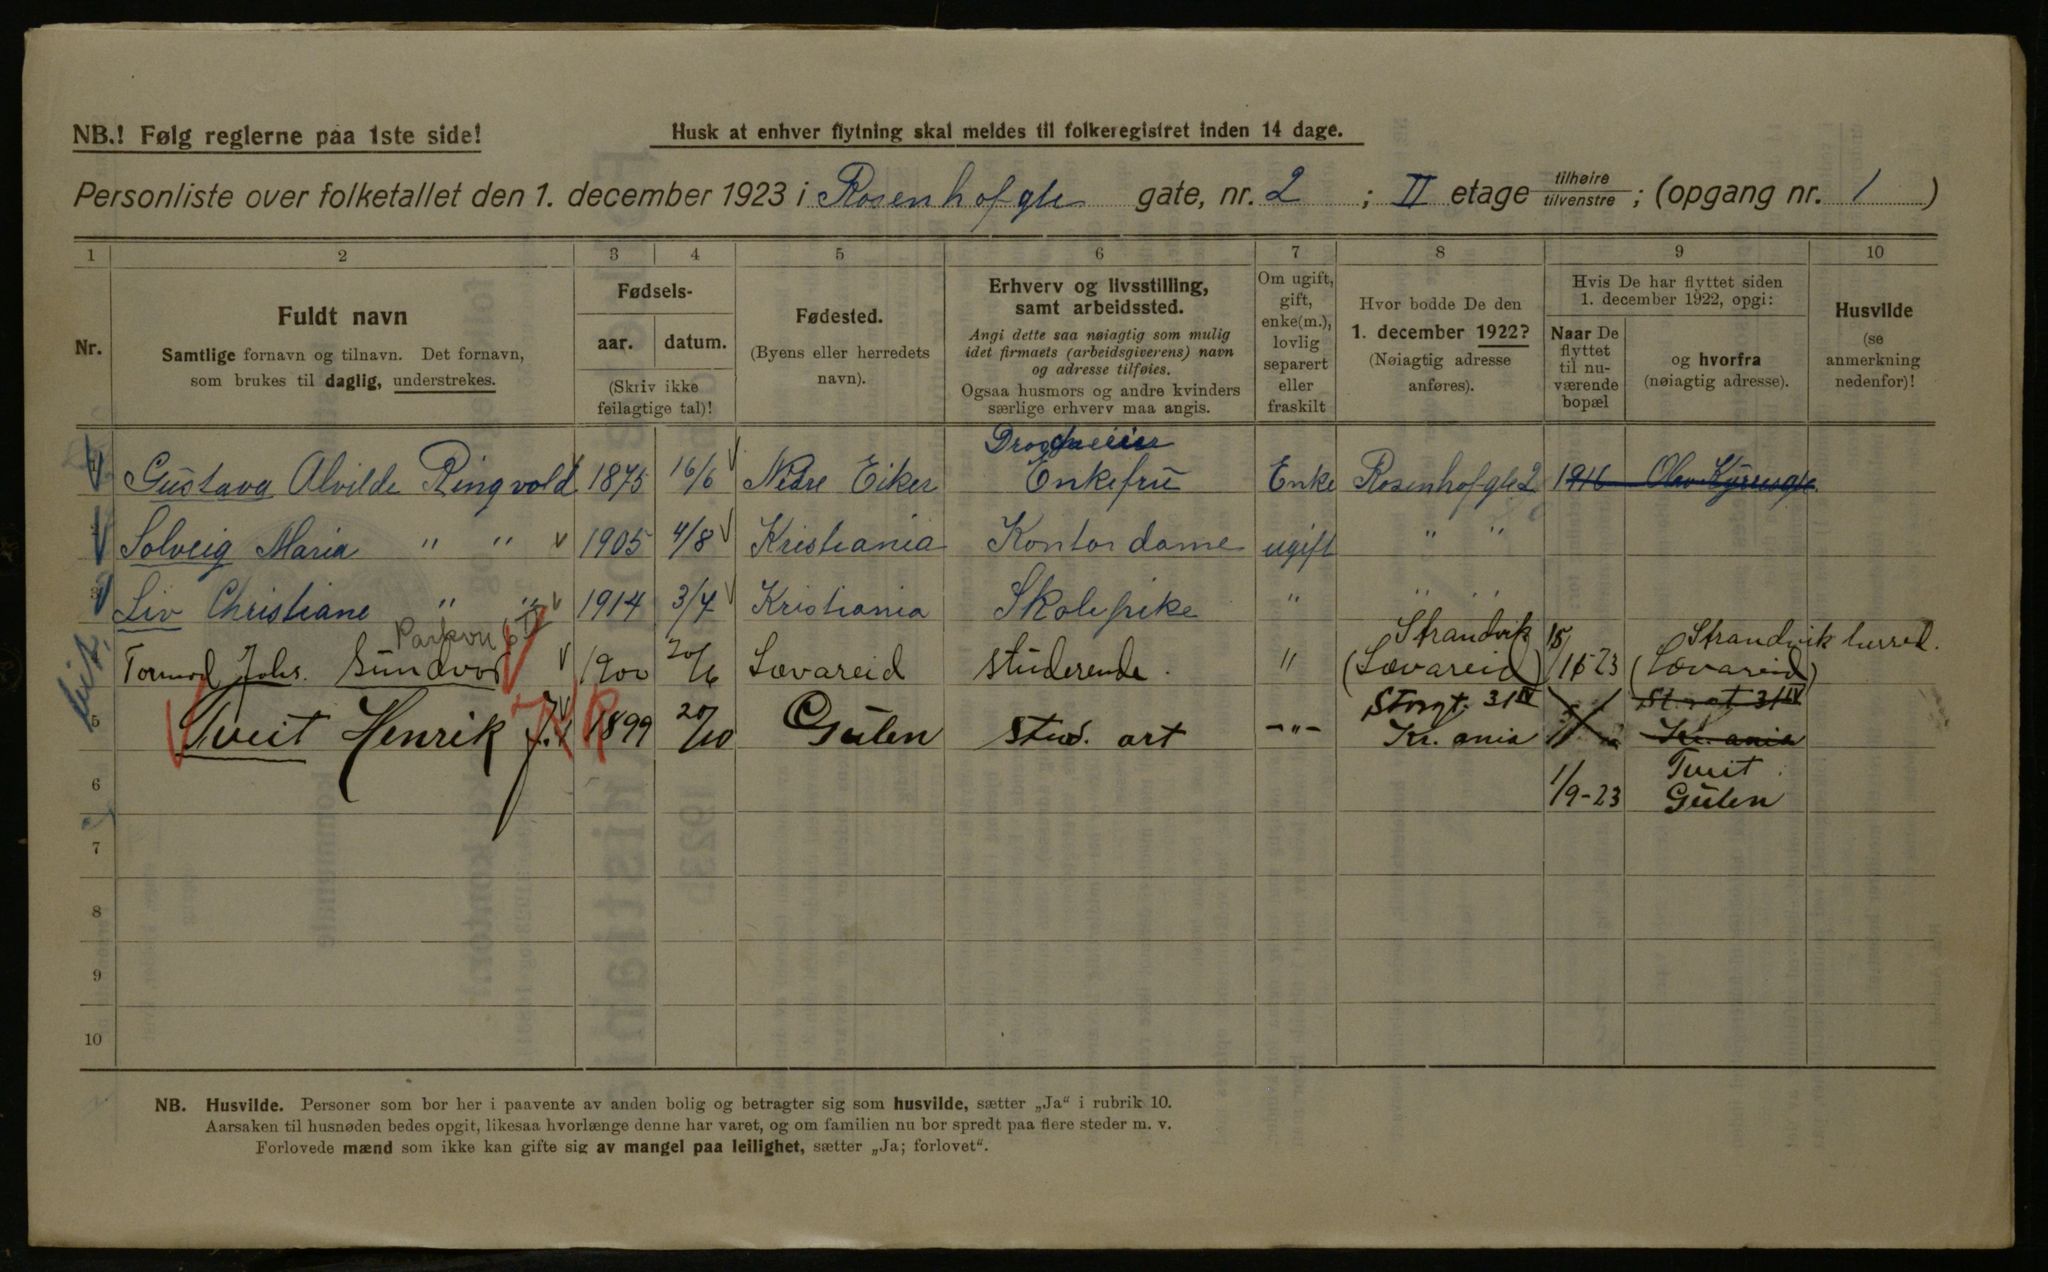 NB.! Følg reglerne paa 1ste side!
Husk at enhver flytning skal meldes til folkeregistret inden 14 dage.
Personliste over folketallet den 1. december 1923 i Rosenhofgte gate, nr. 2 ; II etage tilhøire/tilvenstre ; (opgang nr. 1 )
1 2 3 4 5 6 7 8 9 10
Nr.
Fuldt navn
Samtlige fornavn og tilnavn. Det fornavn,
som brukes til daglig, understrekes.
Fødsels-
aar. datum.
(Skriv ikke
feilagtige tal)!
Fødested.
(Byens eller herredets
navn).
Erhverv og livsstilling,
samt arbeidssted.
Angi dette saa nøiagtig som mulig
idet firmaets (arbeidsgiverens) navn
og adresse tilføies.
Ogsaa husmors og andre kvinders
særlige erhverv maa angis.
Om ugift,
gift,
enke(m.),
lovlig
separert
eller
fraskilt
Hvor bodde De den
1. december 1922?
(Nøiagtig adresse
anføres).
Hvis De har flyttet siden
1. december 1922, opgi:
Naar De
flyttet
til nu-
værende
bopæl
og hvorfra
(nøiagtig adresse).
Husvilde
(se
anmerkning
nedenfor)!
Gustava Alvilde Ringvold 1875 16/6 Nedre Eiker Enkefru Enke Rosenhofgte 2 1916
Solveig Maria " " 1905 4/8 Kristiania Kontordame ugift " "
Liv Christiane " " 1914 3/7 Kristiania Skolepike " " "
Strandvik 15 Strandvik herred.
Tormod Johs. Sundvor 1900 20/6 Sævareid studerende. " (Sævareid) (Sævareid)
Storgt. 31 IV Storgt 31 IV
5 Tveit Henrik J. 1899 20/10 Gulen stud. art -"- Kr. ania Kr. ania
Tveit
6 1/9-23 Gulen
7
8
9
10
NB. Husvilde. Personer som bor her i paavente av anden bolig og betragter sig som husvilde, sætter „Ja“ i rubrik 10.
Aarsaken til husnøden bedes opgit, likesaa hvorlænge denne har varet, og om familien nu bor spredt paa flere steder m. v.
Forlovede mænd som ikke kan gifte sig av mangel paa leilighet, sætter „Ja; forlovet“.